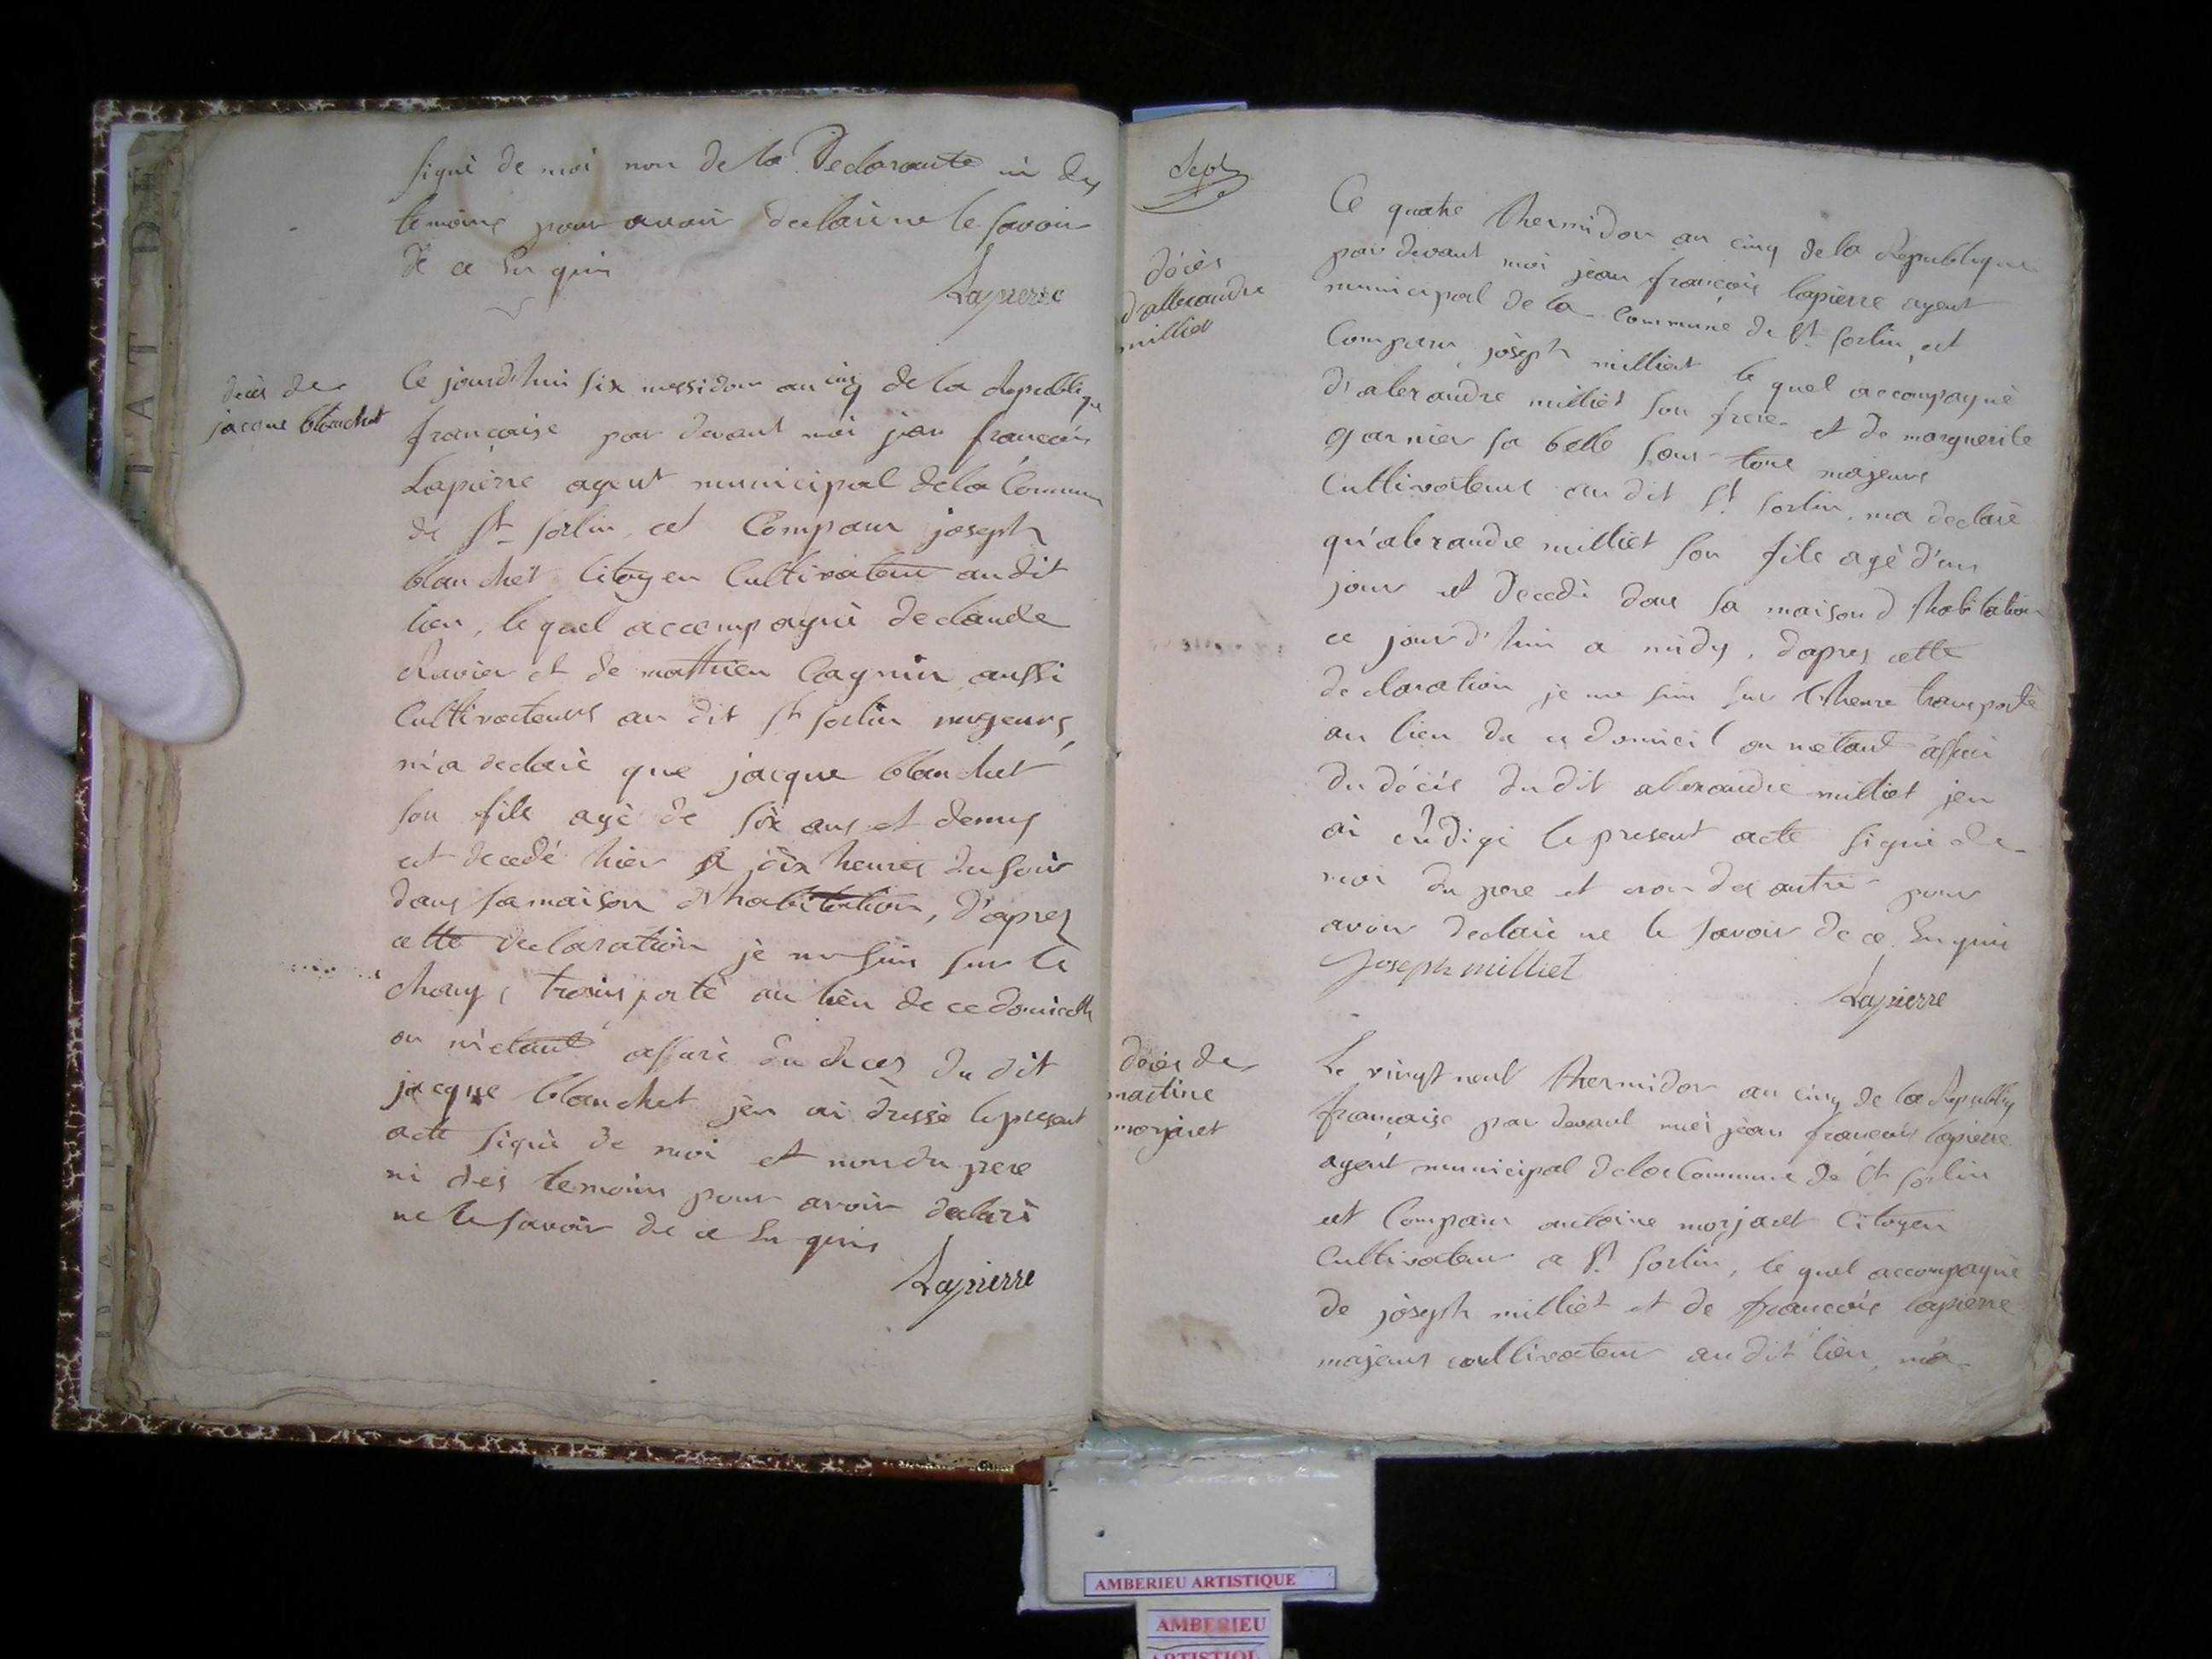 signé de moi non de la Declarante ni des
temoins pour avoir declairé ne le savoir
de ce Enquis
Lapierre
decès de
jacque blanchet
Ce jourd'hui six messidor an cinq de la Republique
française par devant moi jean françois
Lapierre agent municipal de la Commune
de St Sorlin, est Comparu joseph
blanchet Citoyen Cultivateur au dit
lieu, le quel accompagné de claude
Ravier et de mathieu Cagnin aussi
Cultivateurs au dit St Sorlin majeurs,
m'a declaré que jacque blanchet
son fils agé de six ans et demy
est decedé hier a dix heures du soir
dans sa maison d'habitation, d'apres
cette declaration je me suis sur le
champ transporté au lieu de ce domicille
ou m'étant assuré du deces du dit
jacque blanchet j'en ai dressé le present
acte signé de moi et non du pere
ni des temoins pour avoir declaré
ne le savoir de ce Enquis
Lapierre
sept
décès
d'allexandre
milliet
Ce quatre thermidor an cinq de la Republique
par devant moi jean françois lapierre agent
municipal de la Commune de St Sorlin, est
Comparu joseph milliet le quel accompagné
d'alexandre milliet son frere et de marguerite
garnier sa belle sœur tous majeurs
Cultivateurs au dit St Sorlin, ma declaré
qu'alexandre milliet son fils agé d'un
jour est decedé dans sa maison d'habitation
ce jourd'hui a midy, d'apres cette
declaration je me suis sur l'heure transporté
au lieu de ce domicil ou m'etant assuré
du décès du dit allexandre milliet j'en
ai rédigé le present acte signé de
moi du pere et non des autre pour
avoir declaré ne le savoir de ce Enquis
Joseph milliet
Lapierre
décès de
martine
morjaret
Le vingt neuf thermidor an cinq de la Republiq
française par devant moi jean françois lapierre
agent municipal de la Commune de St Sorlin
est Comparu antoine morjaret Citoyen
Cultivateur a St Sorlin, le quel accompagné
de joseph milliet et de françois lapierre
majeurs cultivateur au dit lieu, m'a